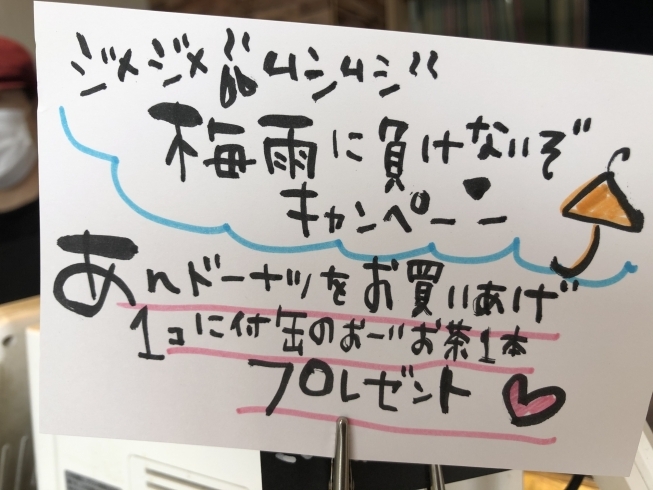 ジメジメムシムシ
梅雨に負けないぞ
キャンペーン
あんドーナツをお買いあげ
1コに付缶のおーいお茶1本
プレゼント